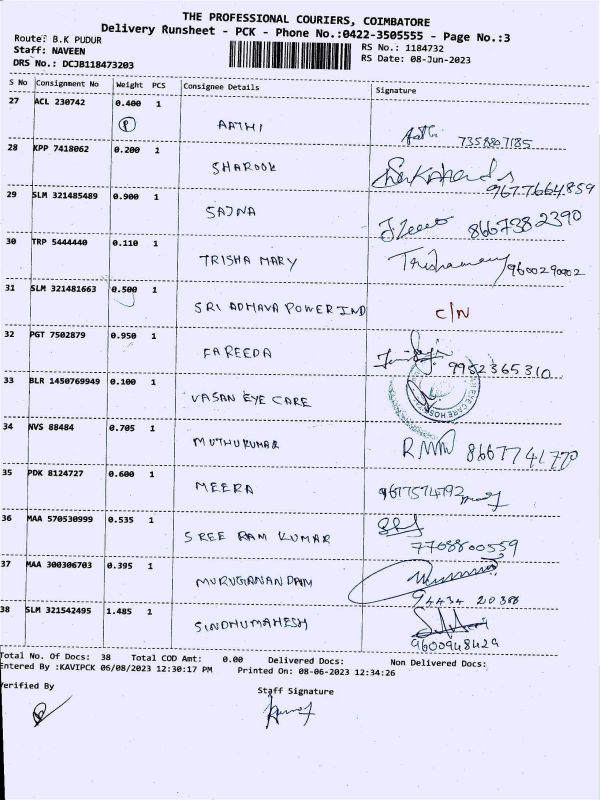 THE PROFESSIONAL COURIERS, COIMBATORE
Delivery Runsheet - PCK - Phone No.:0422-3505555 - Page No.:3
Route: B.K PUDUR
RS No.: 1184732
Staff: NAVEEN
RS Date: 08-Jun-2023
DRS No.: DCJB118473203
S No Consignment No Weight PCS Consignee Details Signature
27 ACL 230742 0.400 1
P AATHI 7358807185
28 KPP 7418062 0.200 1
SHAROOK 9677664859
29 SLM 321485489 0.900 1
SAJNA 8667382390
30 TRP 5444440 0.110 1
TRISHA MARY Trishamary 9600290002
31 SLM 321481663 0.500 1
SRI ADHAVA POWER IND C/N
32 PGT 7502879 0.950 1
FAREEDA 9952365310
33 BLR 1450769949 0.100 1
VASAN EYE CARE EYE CARE HOSPITAL
34 NVS 88484 0.705 1
MUTHUKUMAR 8667741770
35 PDK 8124727 0.600 1
MEERA 9677574792
36 MAA 570530999 0.535 1
SREE RAM KUMAR 7708800559
37 MAA 300306703 0.395 1
MURUGANANDAM
38 SLM 321542495 1.485 1
SINDHUMAHESH 9600948429
Total No. Of Docs: 38 Total COD Amt: 0.00 Delivered Docs: Non Delivered Docs:
Entered By :KAVIPCK 06/08/2023 12:30:17 PM Printed On: 08-06-2023 12:34:26
Verified By Staff Signature